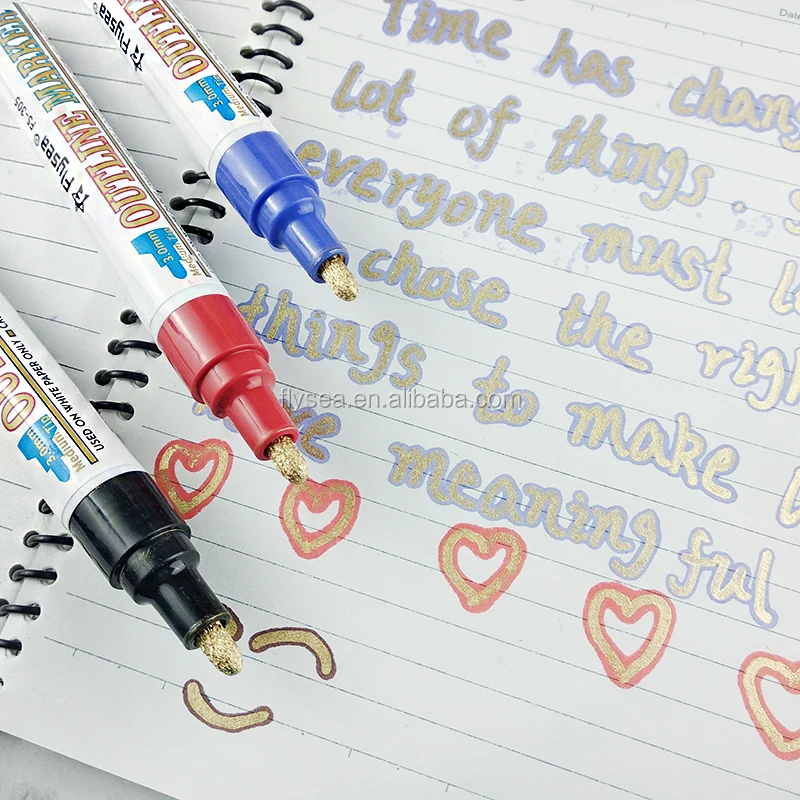 Date
Time has chang
lot of things.
everyone must l
chose the righ
things to make
meaningful
flysea.en.alibaba.com
Flysea® OUTLINE
3.0mm
Medium Tip
Flysea® FS-305
OUTLINE MARKER
3.0mm
Medium Tip
USED ON WHITE PAPER ONLY
OU
3.0mm
Medium Tip